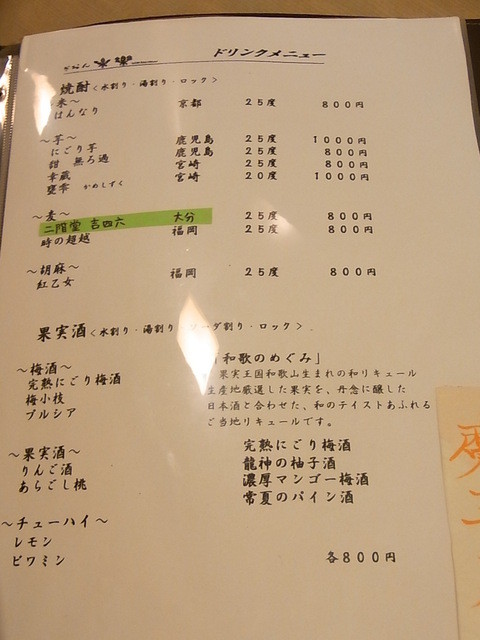 ぎおん
ドリンクメニュー
焼酎＜水割り・湯割り・ロック＞
～米～
はんなり 京都 ２５度 ８００円
～芋～
にごり芋 鹿児島 ２５度 １０００円
甜 無ろ過 鹿児島 ２５度 ８００円
幸蔵 宮崎 ２５度 ８００円
甕雫 かめしずく 宮崎 ２０度 １０００円
～麦～
二階堂 吉四六 大分 ２５度 ８００円
時の超越 福岡 ２５度 ８００円
～胡麻～
紅乙女 福岡 ２５度 ８００円
果実酒＜水割り・湯割り・ソーダ割り・ロック＞
～梅酒～
完熟にごり梅酒
梅小枝
プルシア
～果実酒～
りんご酒
あらごし桃
～チューハイ～
レモン
ビワミン
「和歌のめぐみ」
果実王国和歌山生まれの和リキュール
生産地厳選した果実を、丹念に醸した
日本酒と合わせた、和のテイストあふれる
ご当地リキュールです。
完熟にごり梅酒
龍神の柚子酒
濃厚マンゴー梅酒
常夏のパイン酒
各８００円